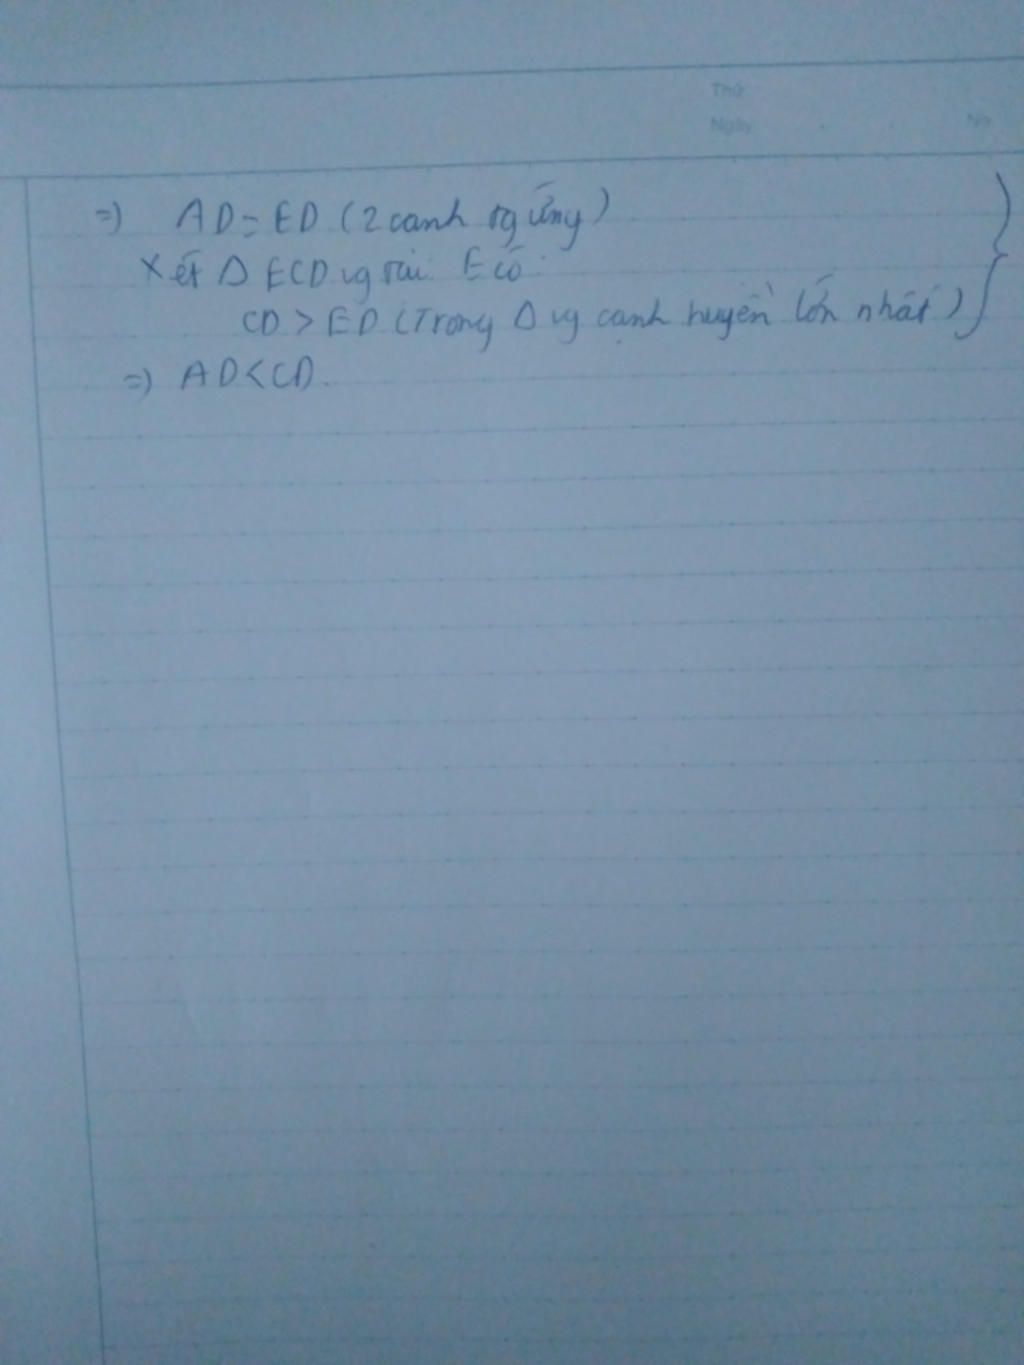 Thứ
Ngày No
=) AD = ED (2 cạnh tg ứng)
Xét Δ ECD vg tại E có:
CD > ED (Trong Δ vg cạnh huyền lớn nhất) }
=) AD < CD.